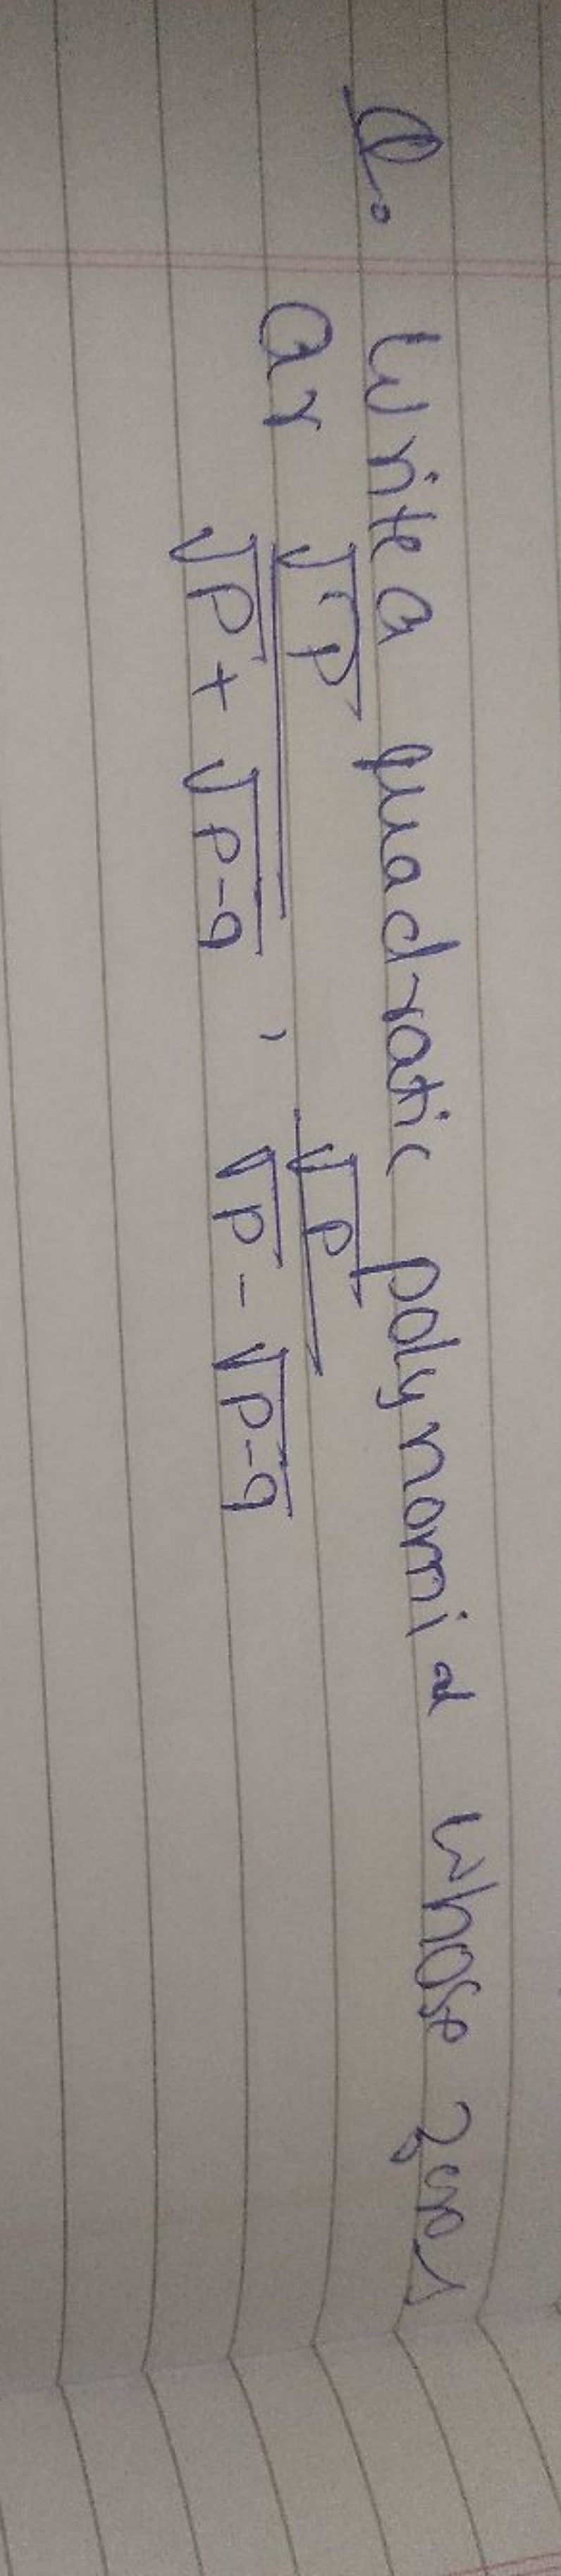 Q. Write a quadratic polynomial whose zeros
ar √p / √p + √p-q , √p / √p - √p-q